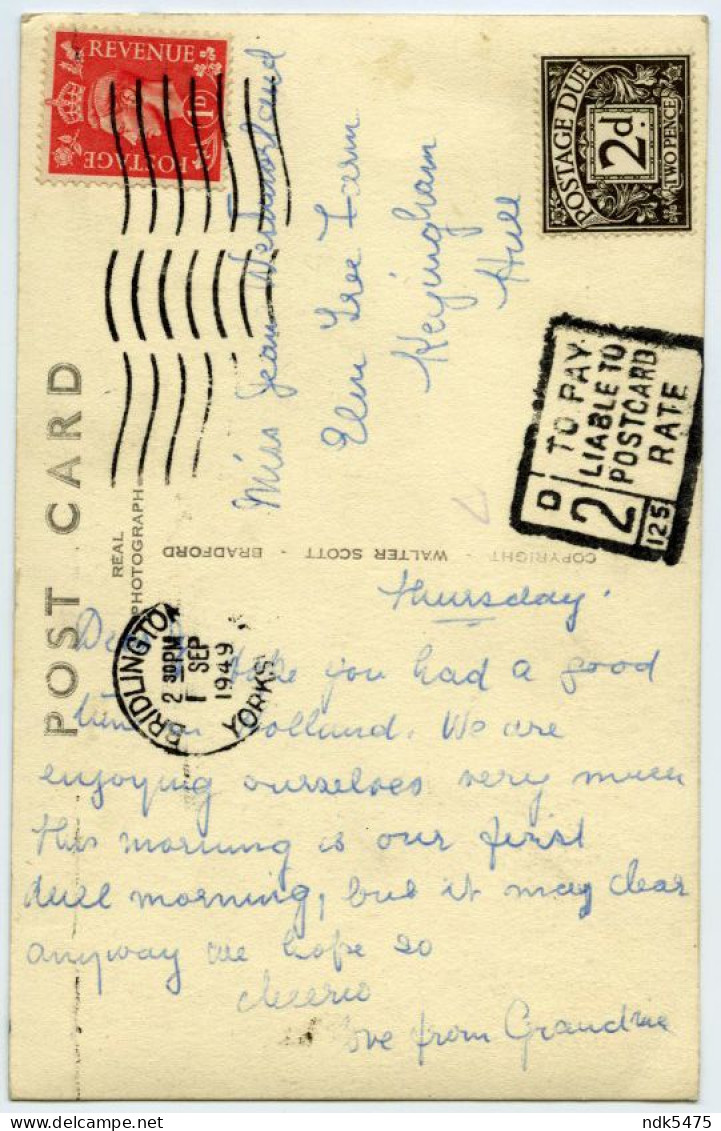 REVENUE
1D
POSTAGE
POSTAGE DUE
2d.
TWO PENCE
D 2
TO PAY
LIABLE TO
POSTCARD
RATE
125
POST CARD
REAL
PHOTOGRAPH
COPYRIGHT - WALTER SCOTT - BRADFORD
Miss Jean Westmorland
Elm Tree Farm
Keyingham
Hull
BRIDLINGTON
2 30PM
1 SEP
1949
YORKS
Thursday.
Hope you had a good
time in Holland. We are
enjoying ourselves very much
this morning is our first
dull morning, but it may clear
anyway we hope so
cheerio
love from Grandma
ndk5475